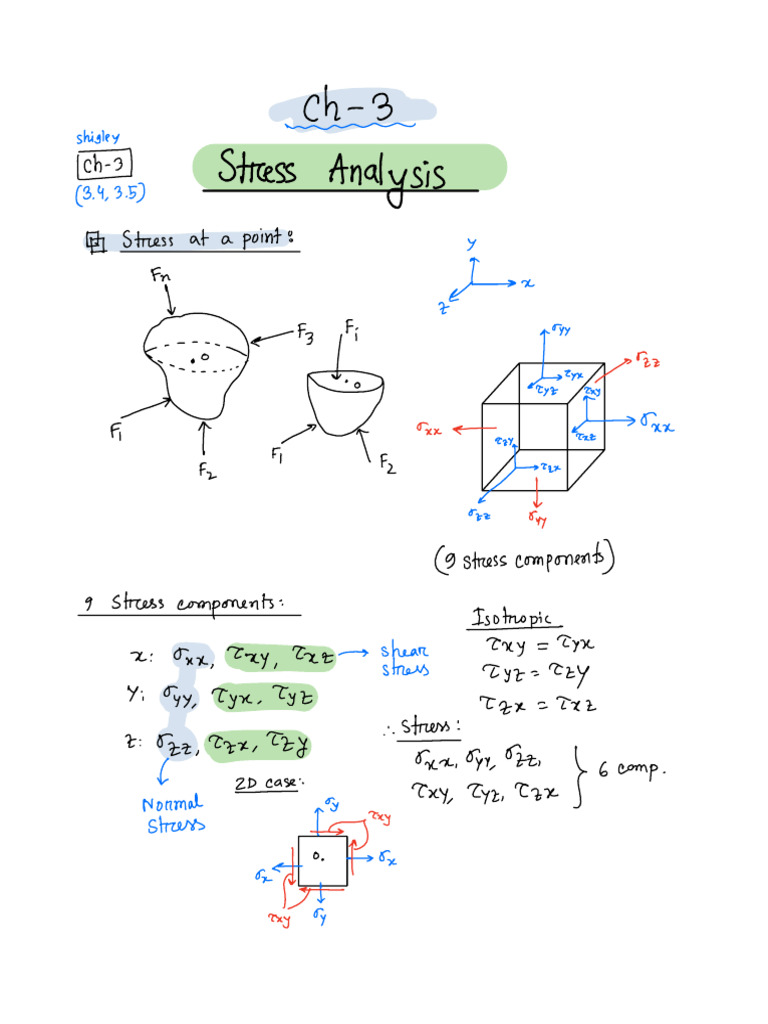 Ch-3
shigley
Ch-3
(3.4, 3.5)
Stress Analysis
Stress at a point:
Fn
F3
F1
F2
Fi
F1
F2
y
x
z
σyy
τyx
τyz
σzz
τxy
σxx
τxz
σxx
τzy
τzx
σzz
σyy
(9 stress components)
9 Stress components:
x: σxx, τxy, τxz → shear stress
Y: σyy, τyx, τyz
z: σzz, τzx, τzy
Normal
Stress
Isotropic
τxy = τyx
τyz = τzy
τzx = τxz
∴ Stress:
σxx, σyy, σzz,
τxy, τyz, τzx } 6 comp.
2D case:
σy
τxy
O.
σx
σx
τxy
σy